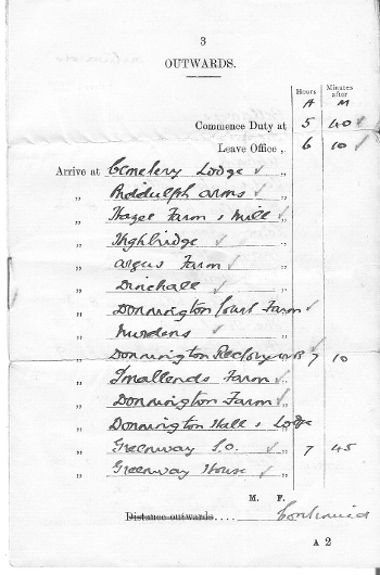 3
OUTWARDS.
Hours Minutes after
A M
Commence Duty at 5 40 ✓
Leave Office „ 6 10 ✓
Arrive at Cemetery Lodge ✓ „
„ Biddulph Arms ✓ „
„ Hazel Farm & Mill ✓ „
„ Highbridge ✓ „
„ Argus Farm ✓ „
„ Dinchall ✓ „
„ Donnington Court Farm ✓
„ Murdens ✓ „
„ Donnington Rectory 7 10
„ Smallends Farm ✓ „
„ Donnington Farm ✓ „
„ Donnington Hall & Lodge
„ Greenway S.O. ✓ „ 7 45
„ Greenway House ✓ „
M. F.
Distance outwards.... Continued
A 2